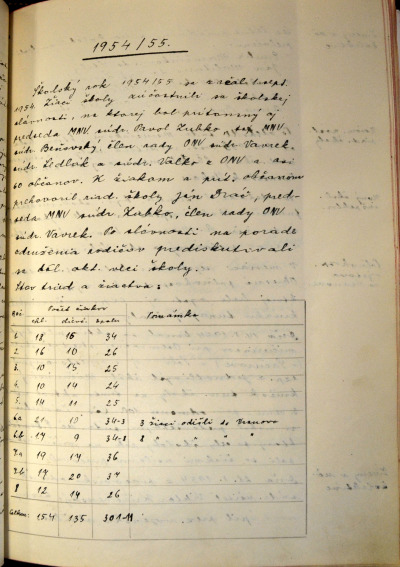 1954/55.
Školský rok 1954/55 sa začal 1. sept.
1954. Žiaci školy zúčastnili sa školskej
slávnosti, na ktorej bol prítomný aj
predseda MNV súdr. Pavol Zubko, taj. MNV
súdr. Beňovský, člen rady ONV súdr. Vavrek,
súdr. Sedlák a súdr. Valko z ONV a asi
60 občanov. K žiakom a prít. občanom
prehovoril riad. školy Ján Drač, pred-
seda MNV súdr. Zubko, člen rady ONV
súdr. Vavrek. Po slávnosti na porade
združenia rodičov prediskutovali
sa akt. veci školy.
Stav tried a žiactva:
Počet žiakov Poznámka
chl. dievč. spolu
1. 18 16 34
2. 16 10 26
3. 10 15 25
4. 10 14 24
5. 14 11 25
6a 21 10 34-3 3 žiaci odišli do Vranova
6b 9 34-8 8 " " " "
7a 19 17 36
7b 14 20 34
8 12 14 26
Celkom: 154 135 301-11